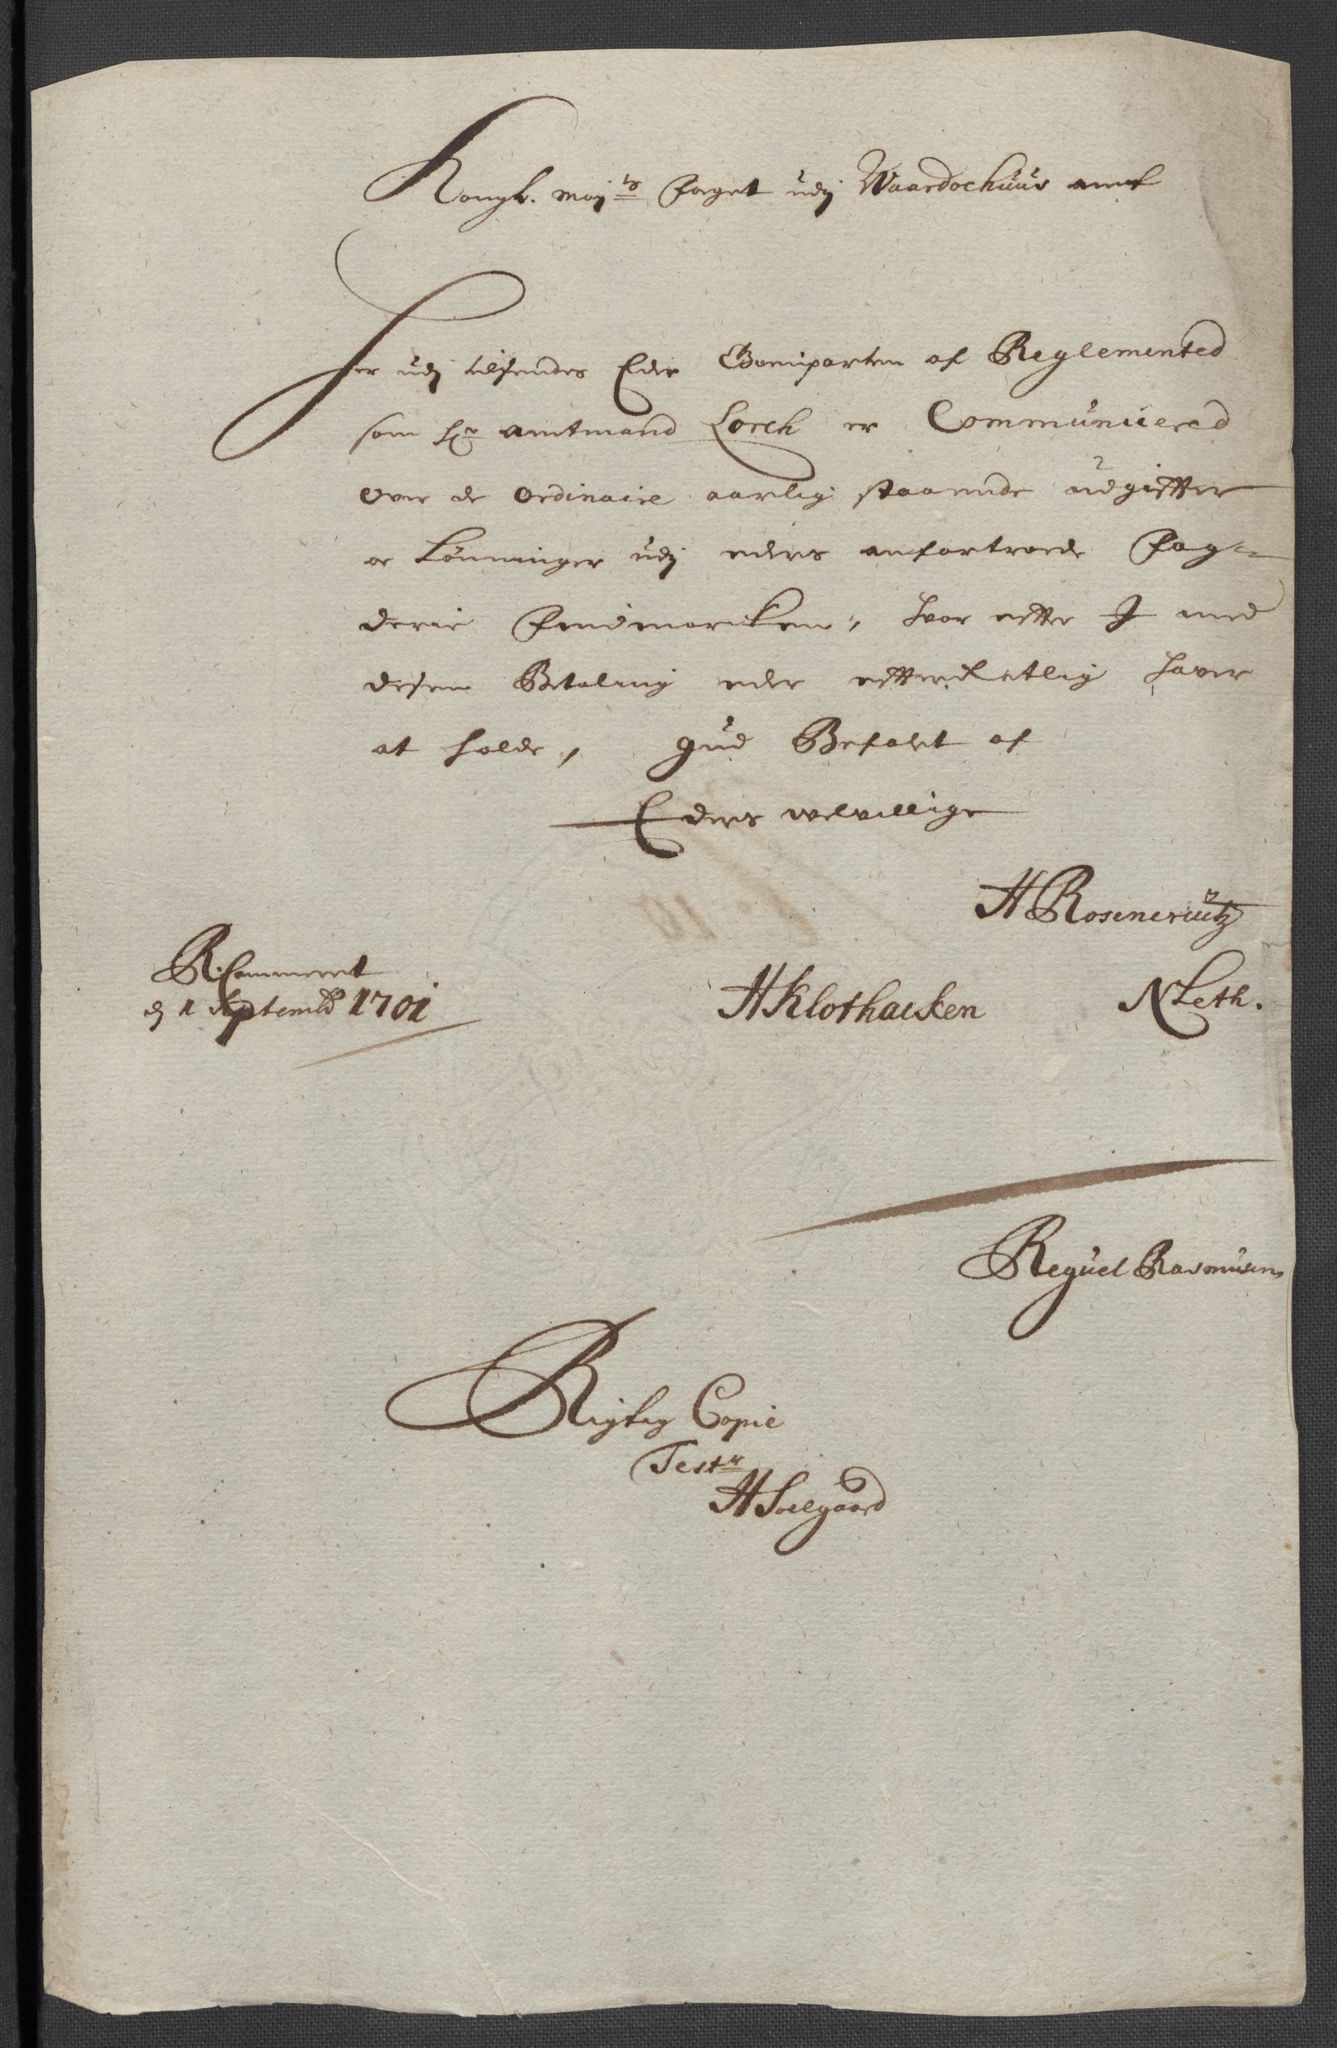 Kongl. Maj:ts Foget udj Waardoehuus amt
Her udj tilsendes Eder Gienparten af Reglemented
som Hr amtmand Lorch er Communicered
over de Ordinaire aarlig staaende udgiffter
oc Lønninger udj eders anfortroede Fog-
derie Findmarcken, hvor effter I med
desen Betaling eder effterretlig haver
at holde, Gud Befalet af
Eders velvillige
H Rosencrütz
R: Cammeret
d 1 Septemb: 1701
H Klothacken
N Leth.
Reguel Rasmusen
Rigtig Copie
Test:
H Soelgaard